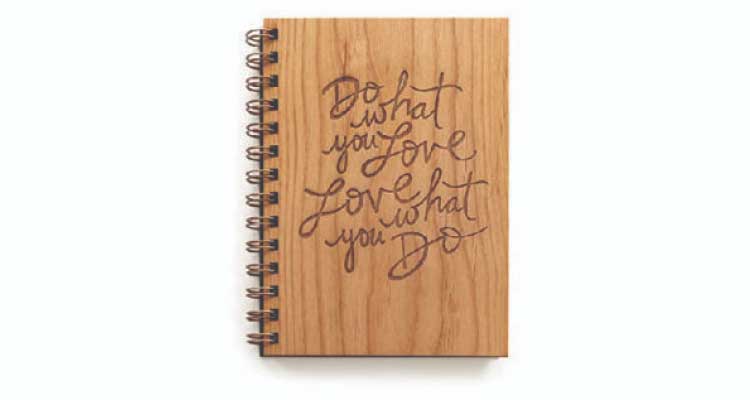 Do
what
you Love
Love
what
you
Do